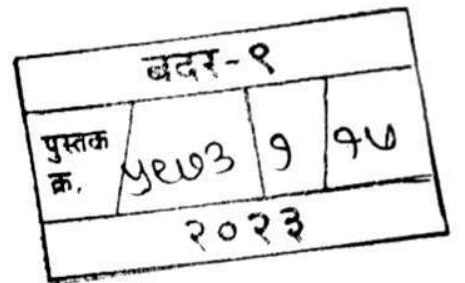 बदर-९
पुस्तक
क्र. ५९७३ १ १७
२०२३